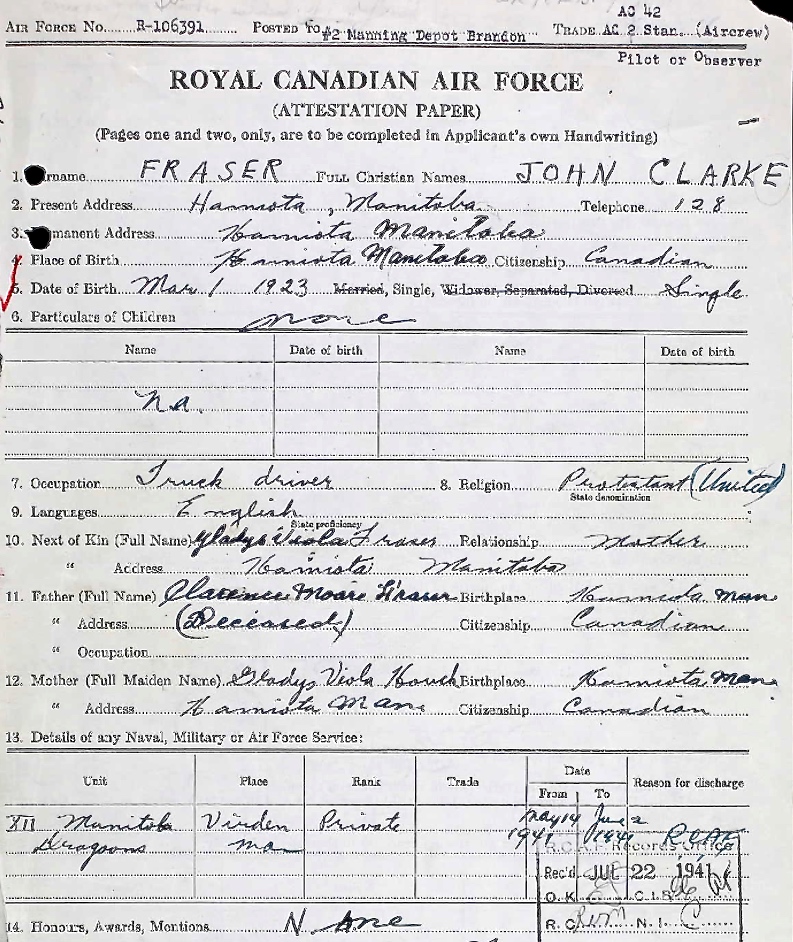 AC 42
AIR FORCE No. R-106391 POSTED TO #2 Manning Depot Brandon TRADE AC 2 Stan. (Aircrew)
Pilot or Observer
ROYAL CANADIAN AIR FORCE
(ATTESTATION PAPER)
(Pages one and two, only, are to be completed in Applicant's own Handwriting)
1. rname FRASER FULL Christian Names JOHN CLARKE
2. Present Address Hamiota, Manitoba Telephone 128
3. manent Address Hamiota Manitoba
4. Place of Birth Hamiota Manitoba Citizenship Canadian
5. Date of Birth Mar 1 1923 Married, Single, Widower, Separated, Divorced Single
6. Particulars of Children none
Name Date of birth Name Date of birth
n.a.
7. Occupation Truck driver 8. Religion Protestant (United)
State denomination
9. Languages English
State proficiency
10. Next of Kin (Full Name) Gladys Viola Fraser Relationship Mother
" Address Hamiota Manitoba
11. Father (Full Name) Clarence Moore Fraser Birthplace Hamiota Man
" Address (Deceased) Citizenship Canadian
" Occupation
12. Mother (Full Maiden Name) Gladys Viola Birthplace Hamiota Man
" Address Hamiota Man Citizenship Canadian
13. Details of any Naval, Military or Air Force Service:
Unit Place Rank Trade Date Reason for discharge
From To
XII Manitoba Virden Private May 14 June 2
Dragoons Man 1941 1941 RCAF
R.C.A.F. Records Office
Rec'd JUL 22 1941
O.K. C.I.S.
R.C. N.I.
14. Honours, Awards, Mentions None